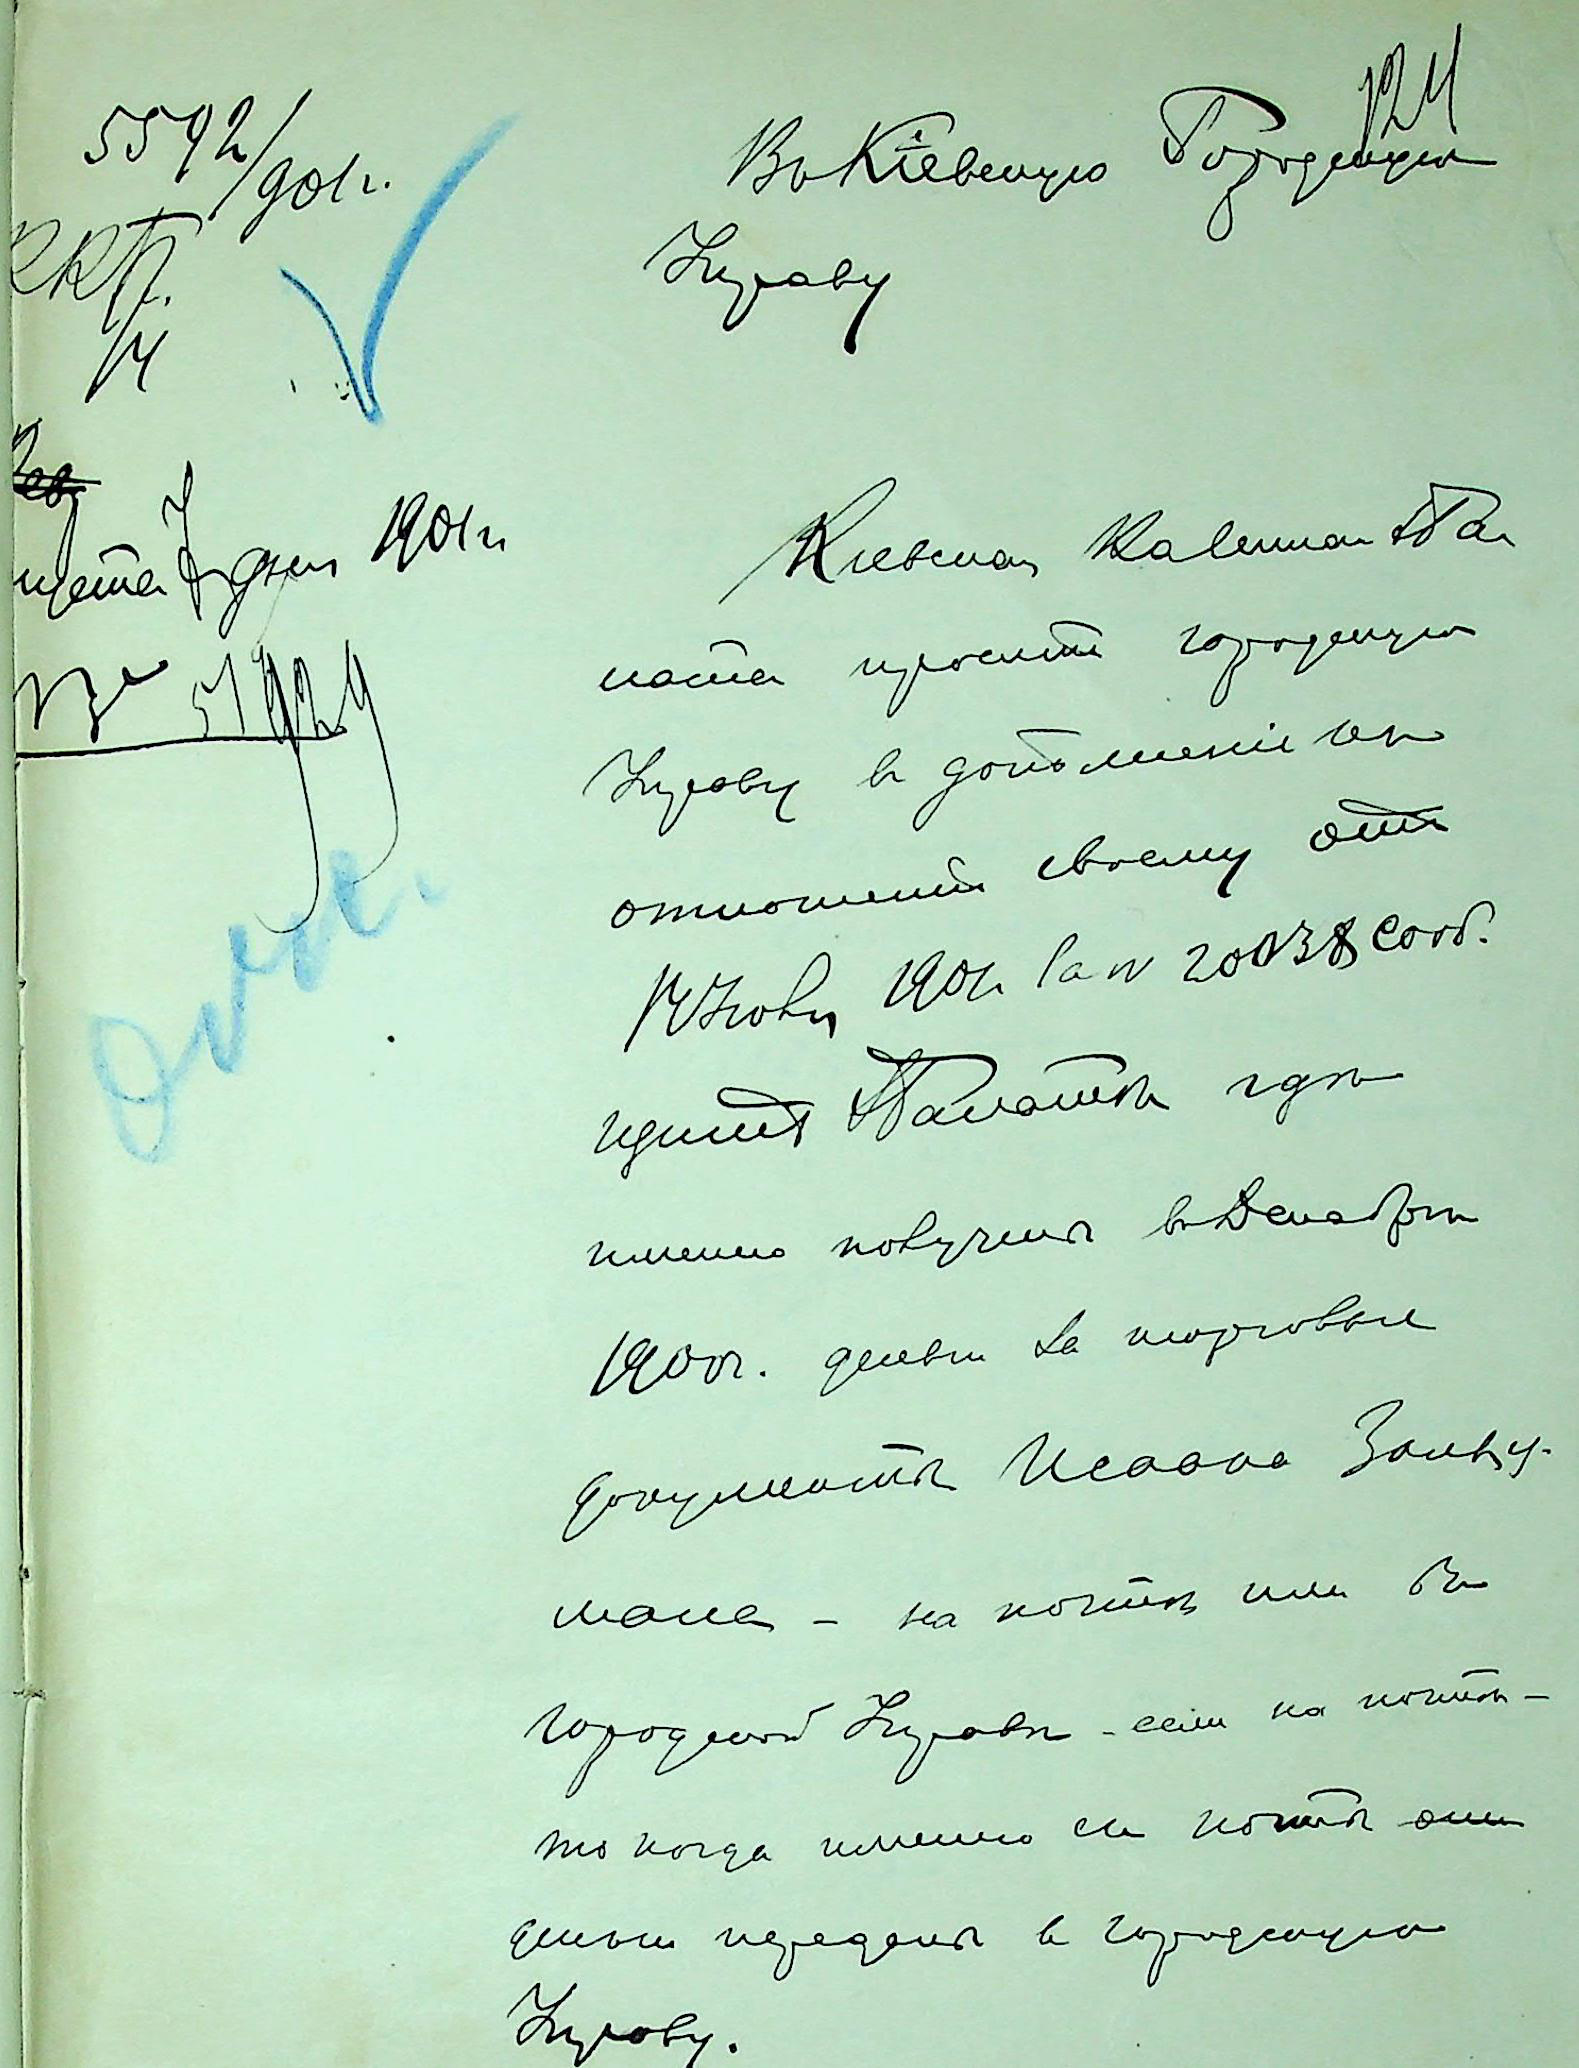 124
5592/901 г.
ККП.
Въ Кіевскую Городскую
Управу
1901 г.
Кіевская Казенная Па
лата проситъ городскую
Управу въ дополненіе къ
отношенію своему отъ
1901 г. за № 20038 сооб.
щить Палатѣ гдѣ
именно получены въ Декабрѣ
1900 г. деньги за торговые
документы Исаака
мана - на почтѣ или въ
городской Управѣ - если на почтѣ -
то когда именно съ почты они
деньги переданы въ городскую
Управу.